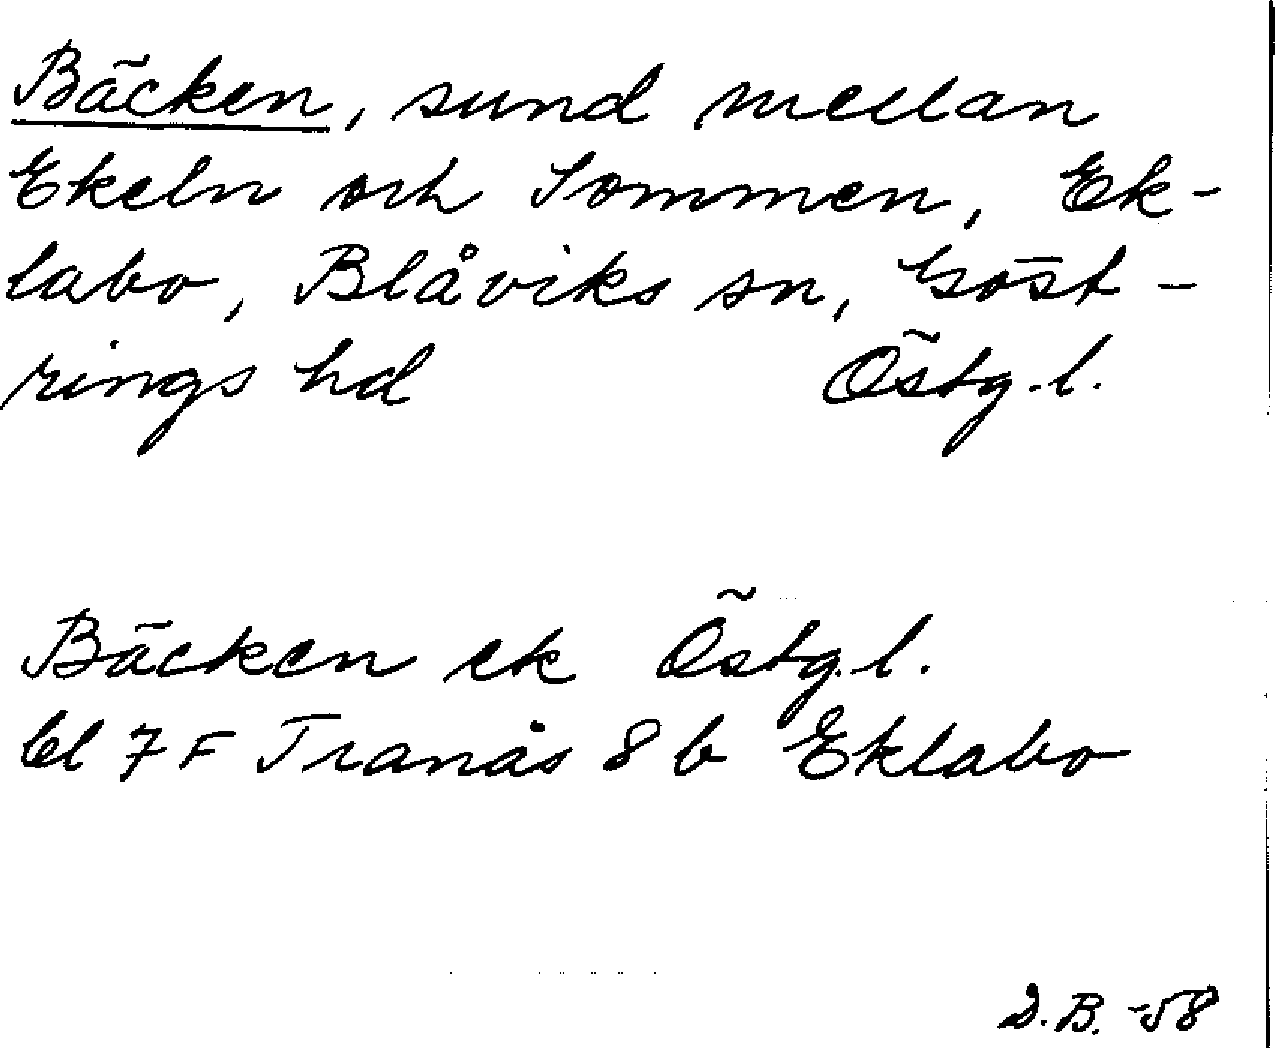 Bäcken, sund mellan
Ekeln och Sommen, Ek-
labo, Blåviks sn, Göst-
rings hd Östg.l.
Bäcken ek Östg.l.
bl 7 F Tranås 8 b Eklabo
D.B. -58